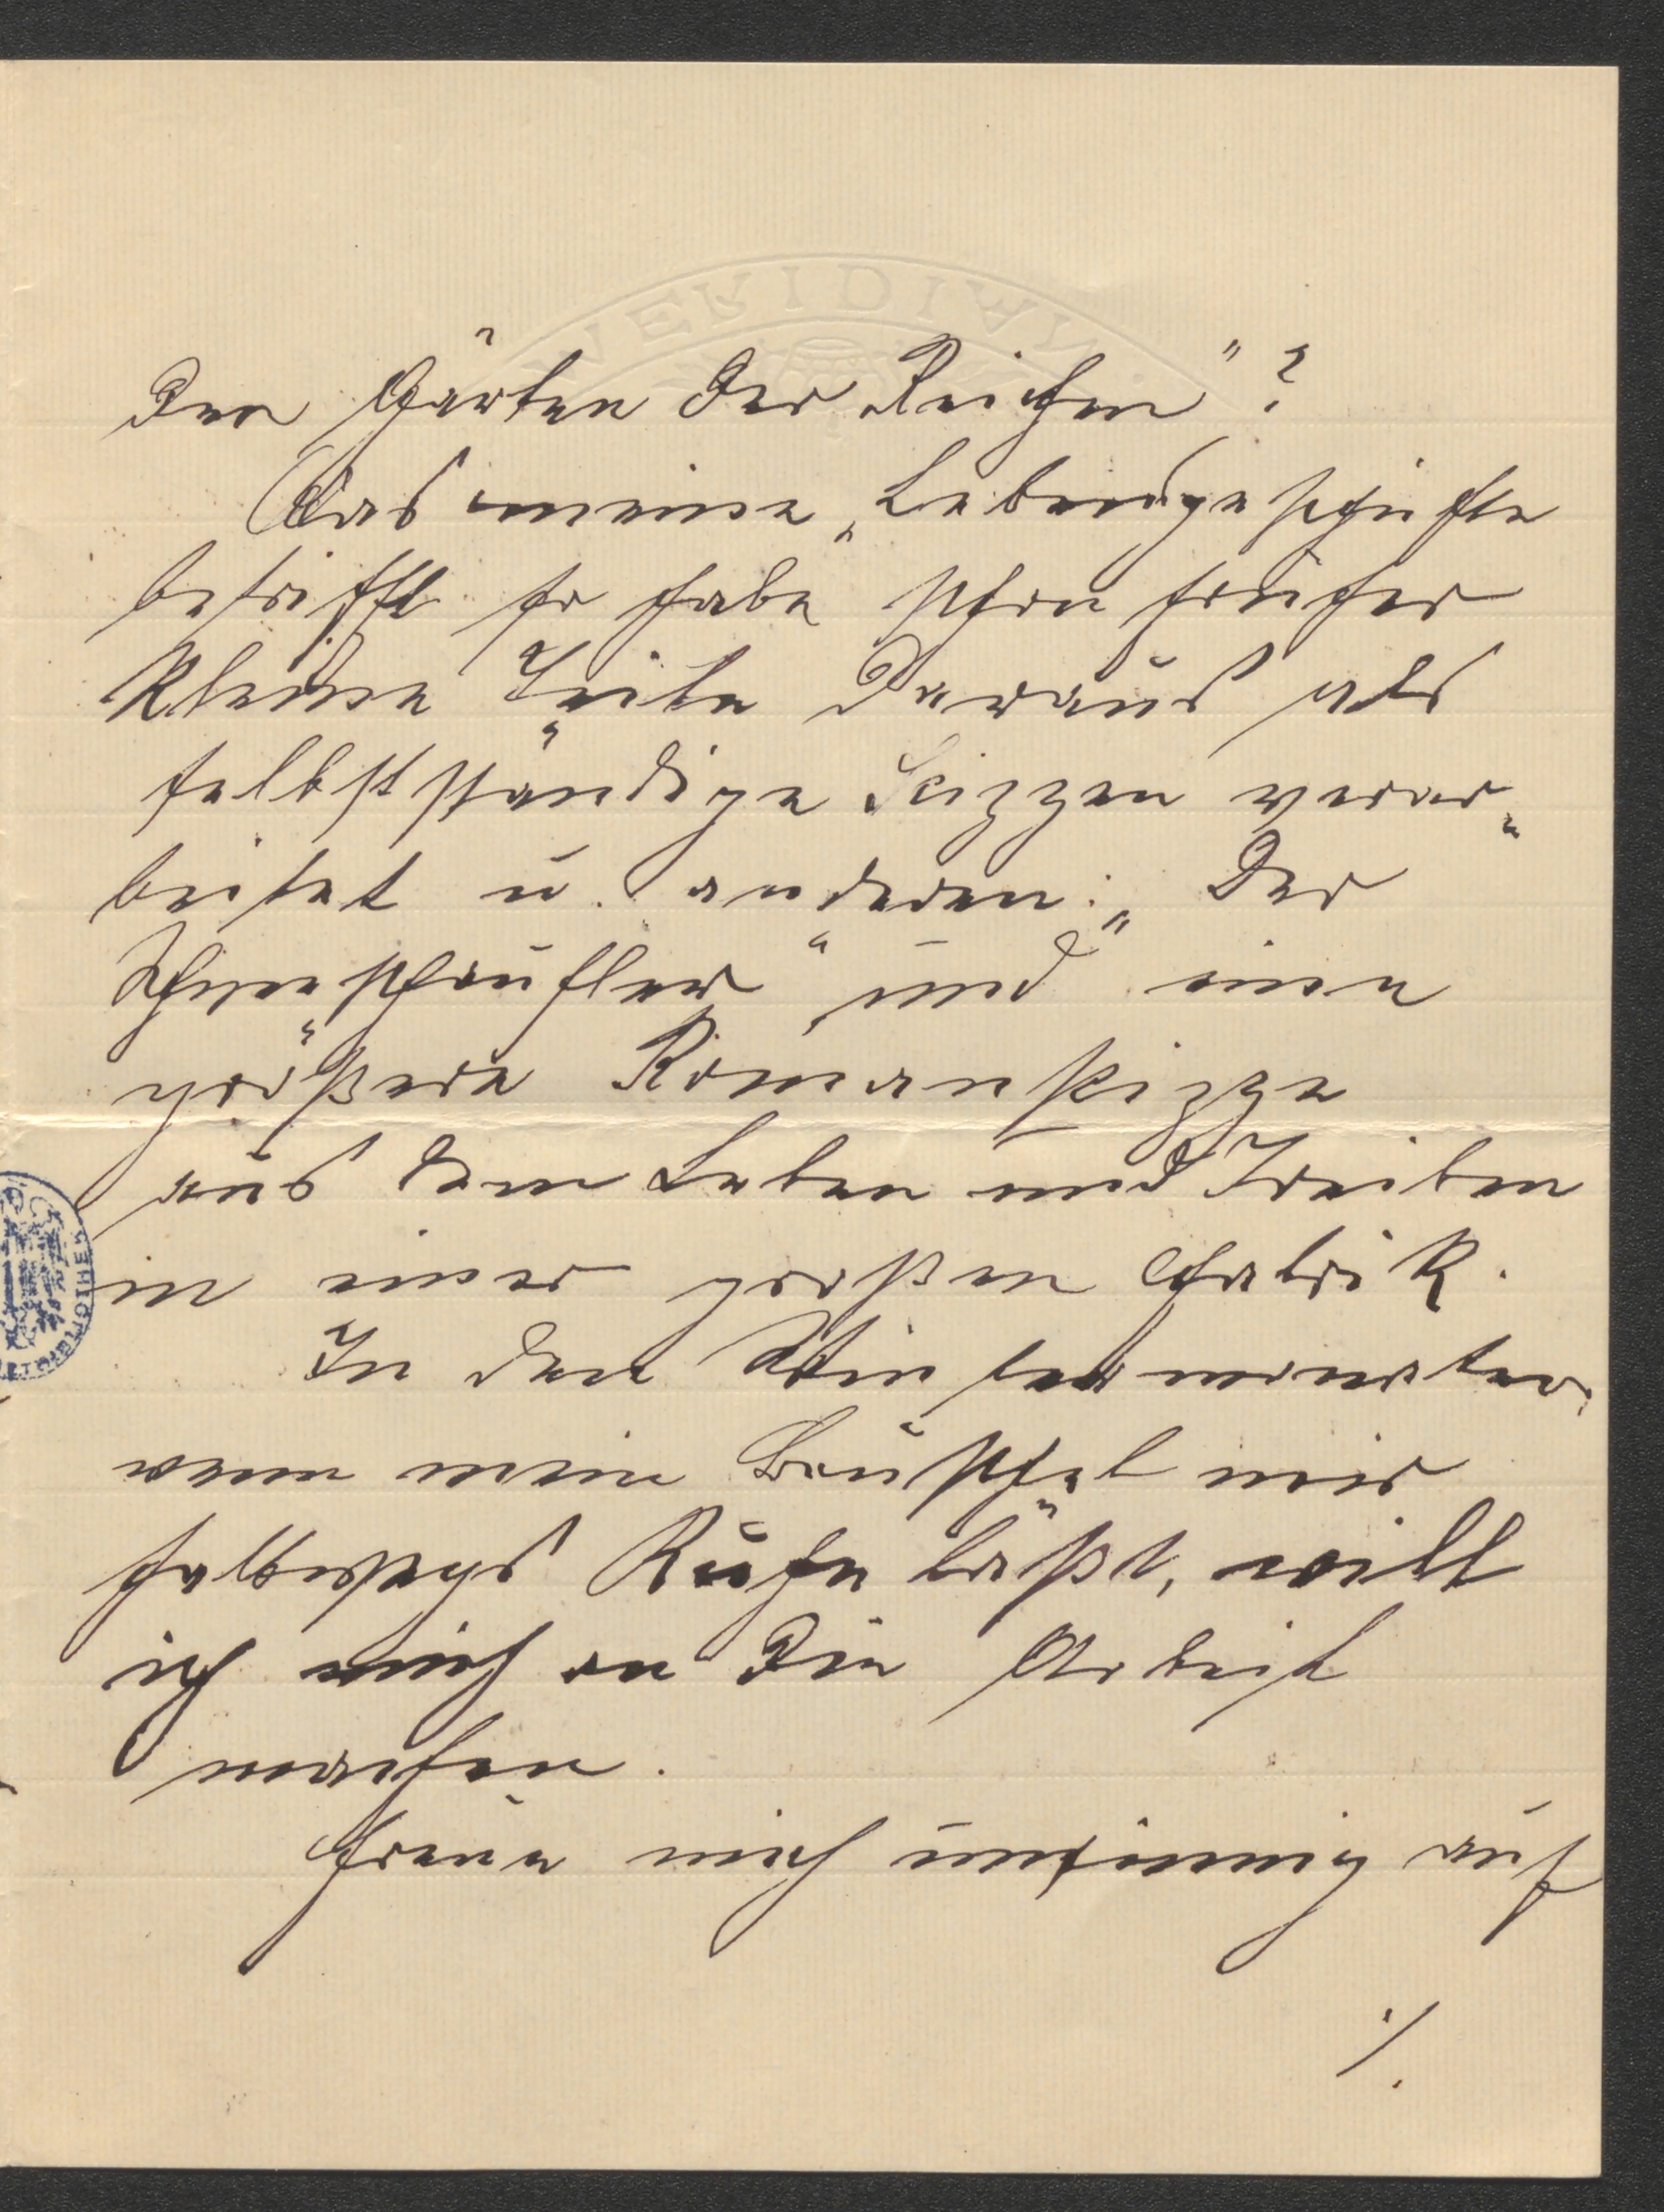 MERIDIAN
den Gärten der Reichen"?
Was meine „Lebensgeschichte
betrifft so habe schon früher
kleine Teile daraus als
selbstständige Skizzen verar-
beitet u. anderen: „Der
Schneeschaufler" und eine
größere Romanskizze
aus dem Leben und Treiben
in einer großen Fabrik.
In den Wintermonaten,
wenn mein mir
halbwegs Ruhe läßt, will
ich mich an die Arbeit
machen.
Freue mich unsinnig auf
./.